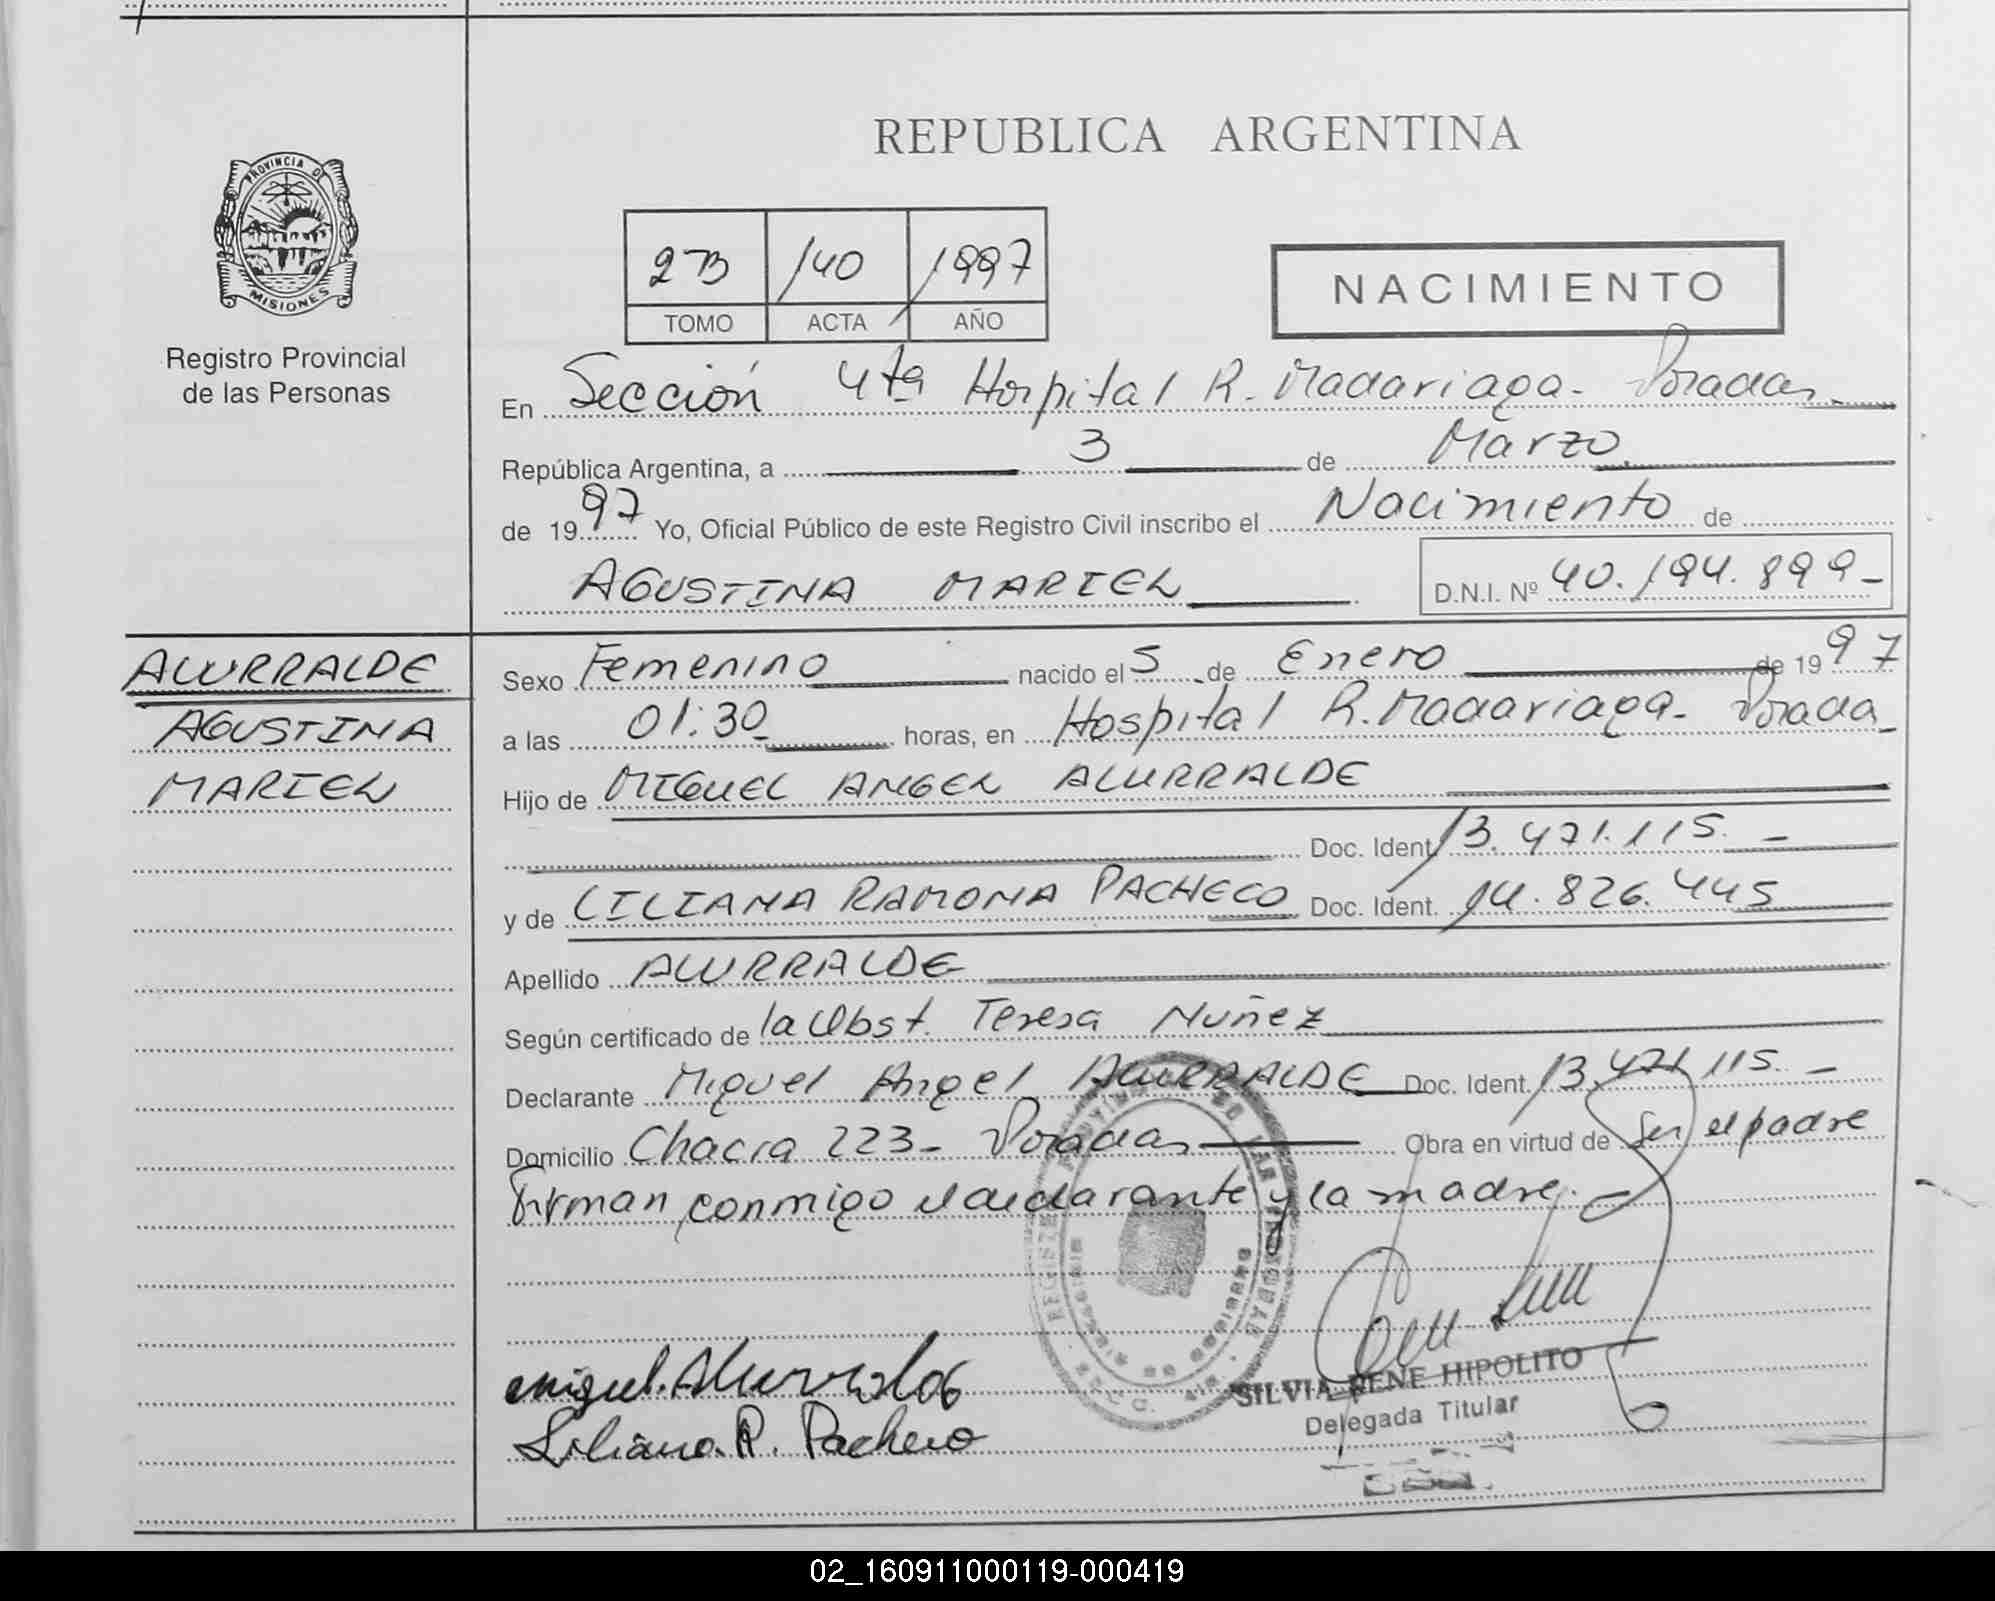 REPUBLICA ARGENTINA
PROVINCIA DE
MISIONES
Registro Provincial
de las Personas
2B 140 1997
TOMO ACTA AÑO
NACIMIENTO
En Sección 4ta Hospital R. Madariaga - Posadas
República Argentina, a 3 de Marzo
de 1997 Yo, Oficial Público de este Registro Civil inscribo el Nacimiento de
AGUSTINA MARIEL D.N.I. Nº 40.194.899-
ALURRALDE
AGUSTINA
MARIEL
Sexo Femenino nacido el 5 de Enero de 1997
a las 01:30 horas, en Hospital R. Madariaga - Posadas
Hijo de MIGUEL ANGEL ALURRALDE
Doc. Ident. 13.471.115. -
y de LILIANA RAMONA PACHECO Doc. Ident. 14.826.445
Apellido ALURRALDE
Según certificado de la Obst. Teresa Nuñez
Declarante Miguel Angel ALURRALDE Doc. Ident. 13.471.115. -
Domicilio Chacra 223 - Posadas Obra en virtud de Ser el padre
Firman conmigo el declarante y la madre. -
miguel. Alurralde
Liliana. R. Pacheco
SILVIA RENE HIPOLITO
Delegada Titular
02_160911000119-000419